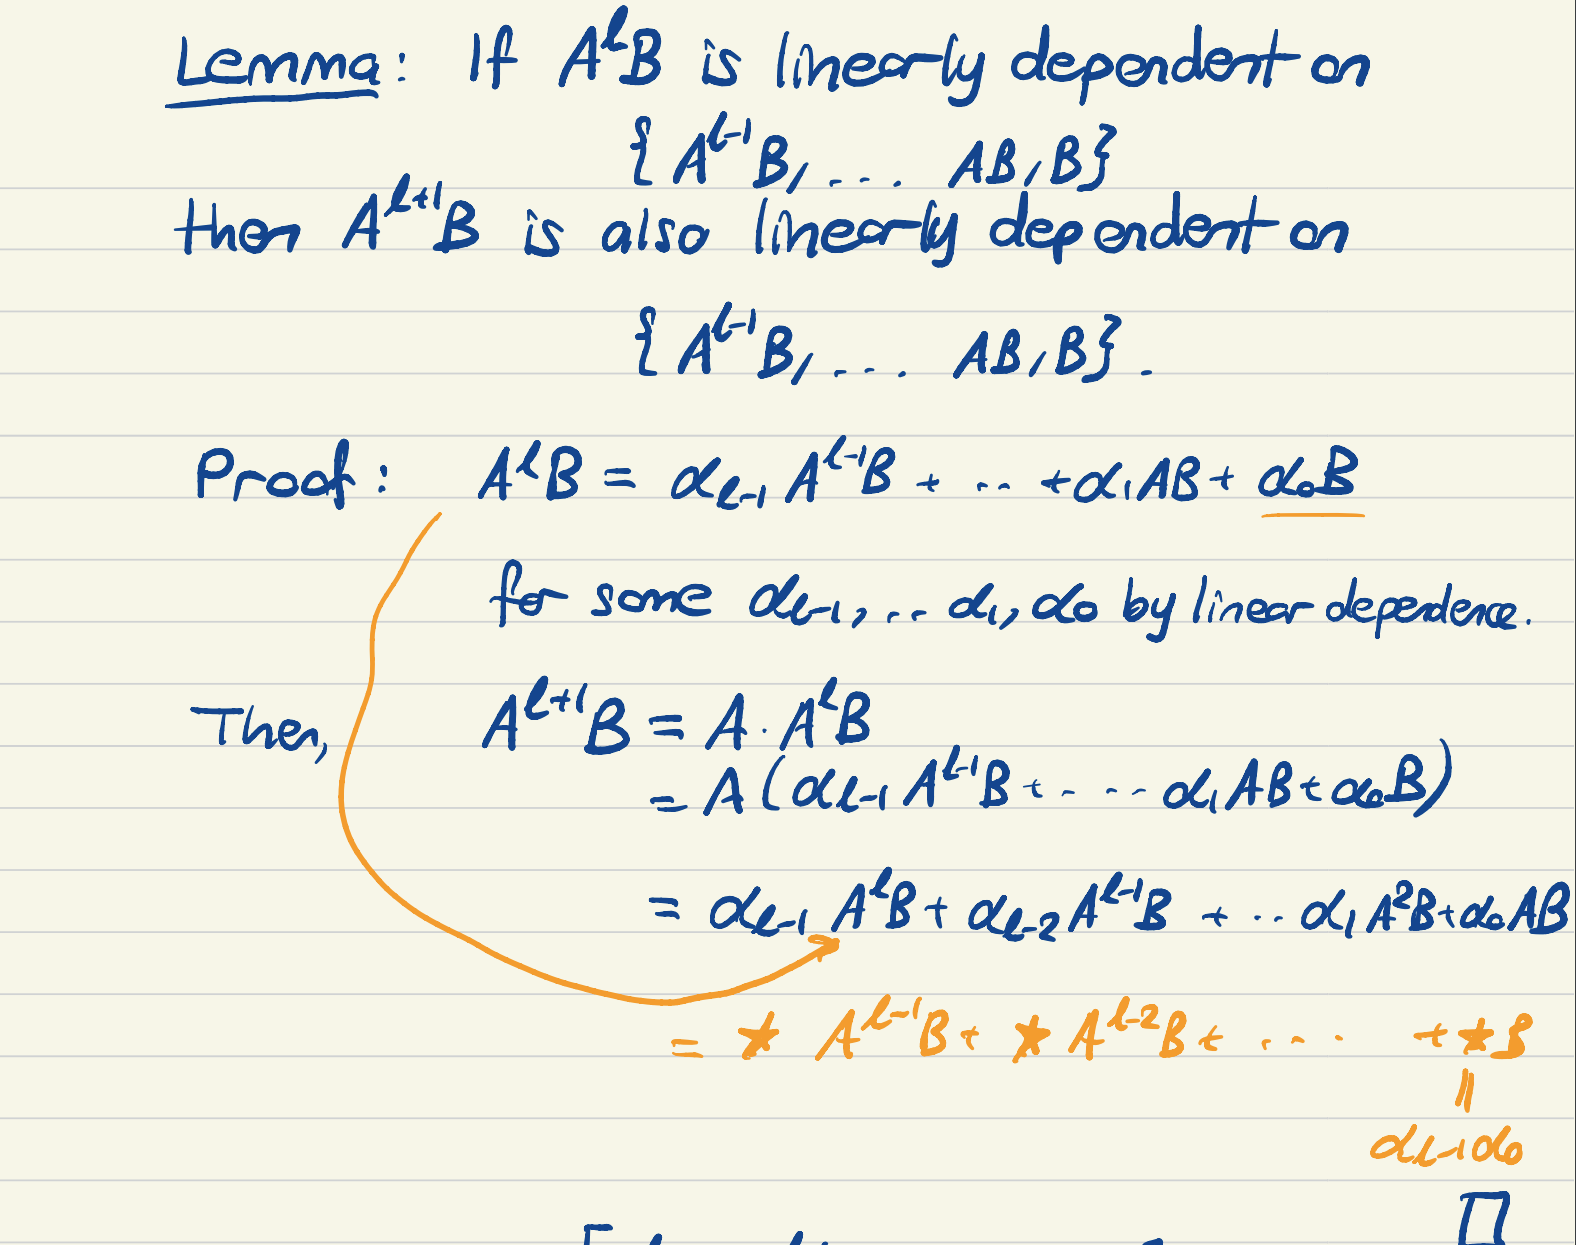 Lemma: If A^ℓB is linearly dependent on
{A^{ℓ-1}B, ... AB, B}
then A^{ℓ+1}B is also linearly dependent on
{A^{ℓ-1}B, ... AB, B}.
Proof: A^ℓB = α_{ℓ-1} A^{ℓ-1}B + ... + α₁AB + α₀B
for some α_{ℓ-1}, ... α₁, α₀ by linear dependence.
Then, A^{ℓ+1}B = A · A^ℓB
= A(α_{ℓ-1} A^{ℓ-1}B + ... α₁AB + α₀B)
= α_{ℓ-1} A^ℓB + α_{ℓ-2} A^{ℓ-1}B + ... α₁A²B + α₀AB
= ★ A^{ℓ-1}B + ★ A^{ℓ-2}B + .... + ★B
||
α_{ℓ-1}α₀